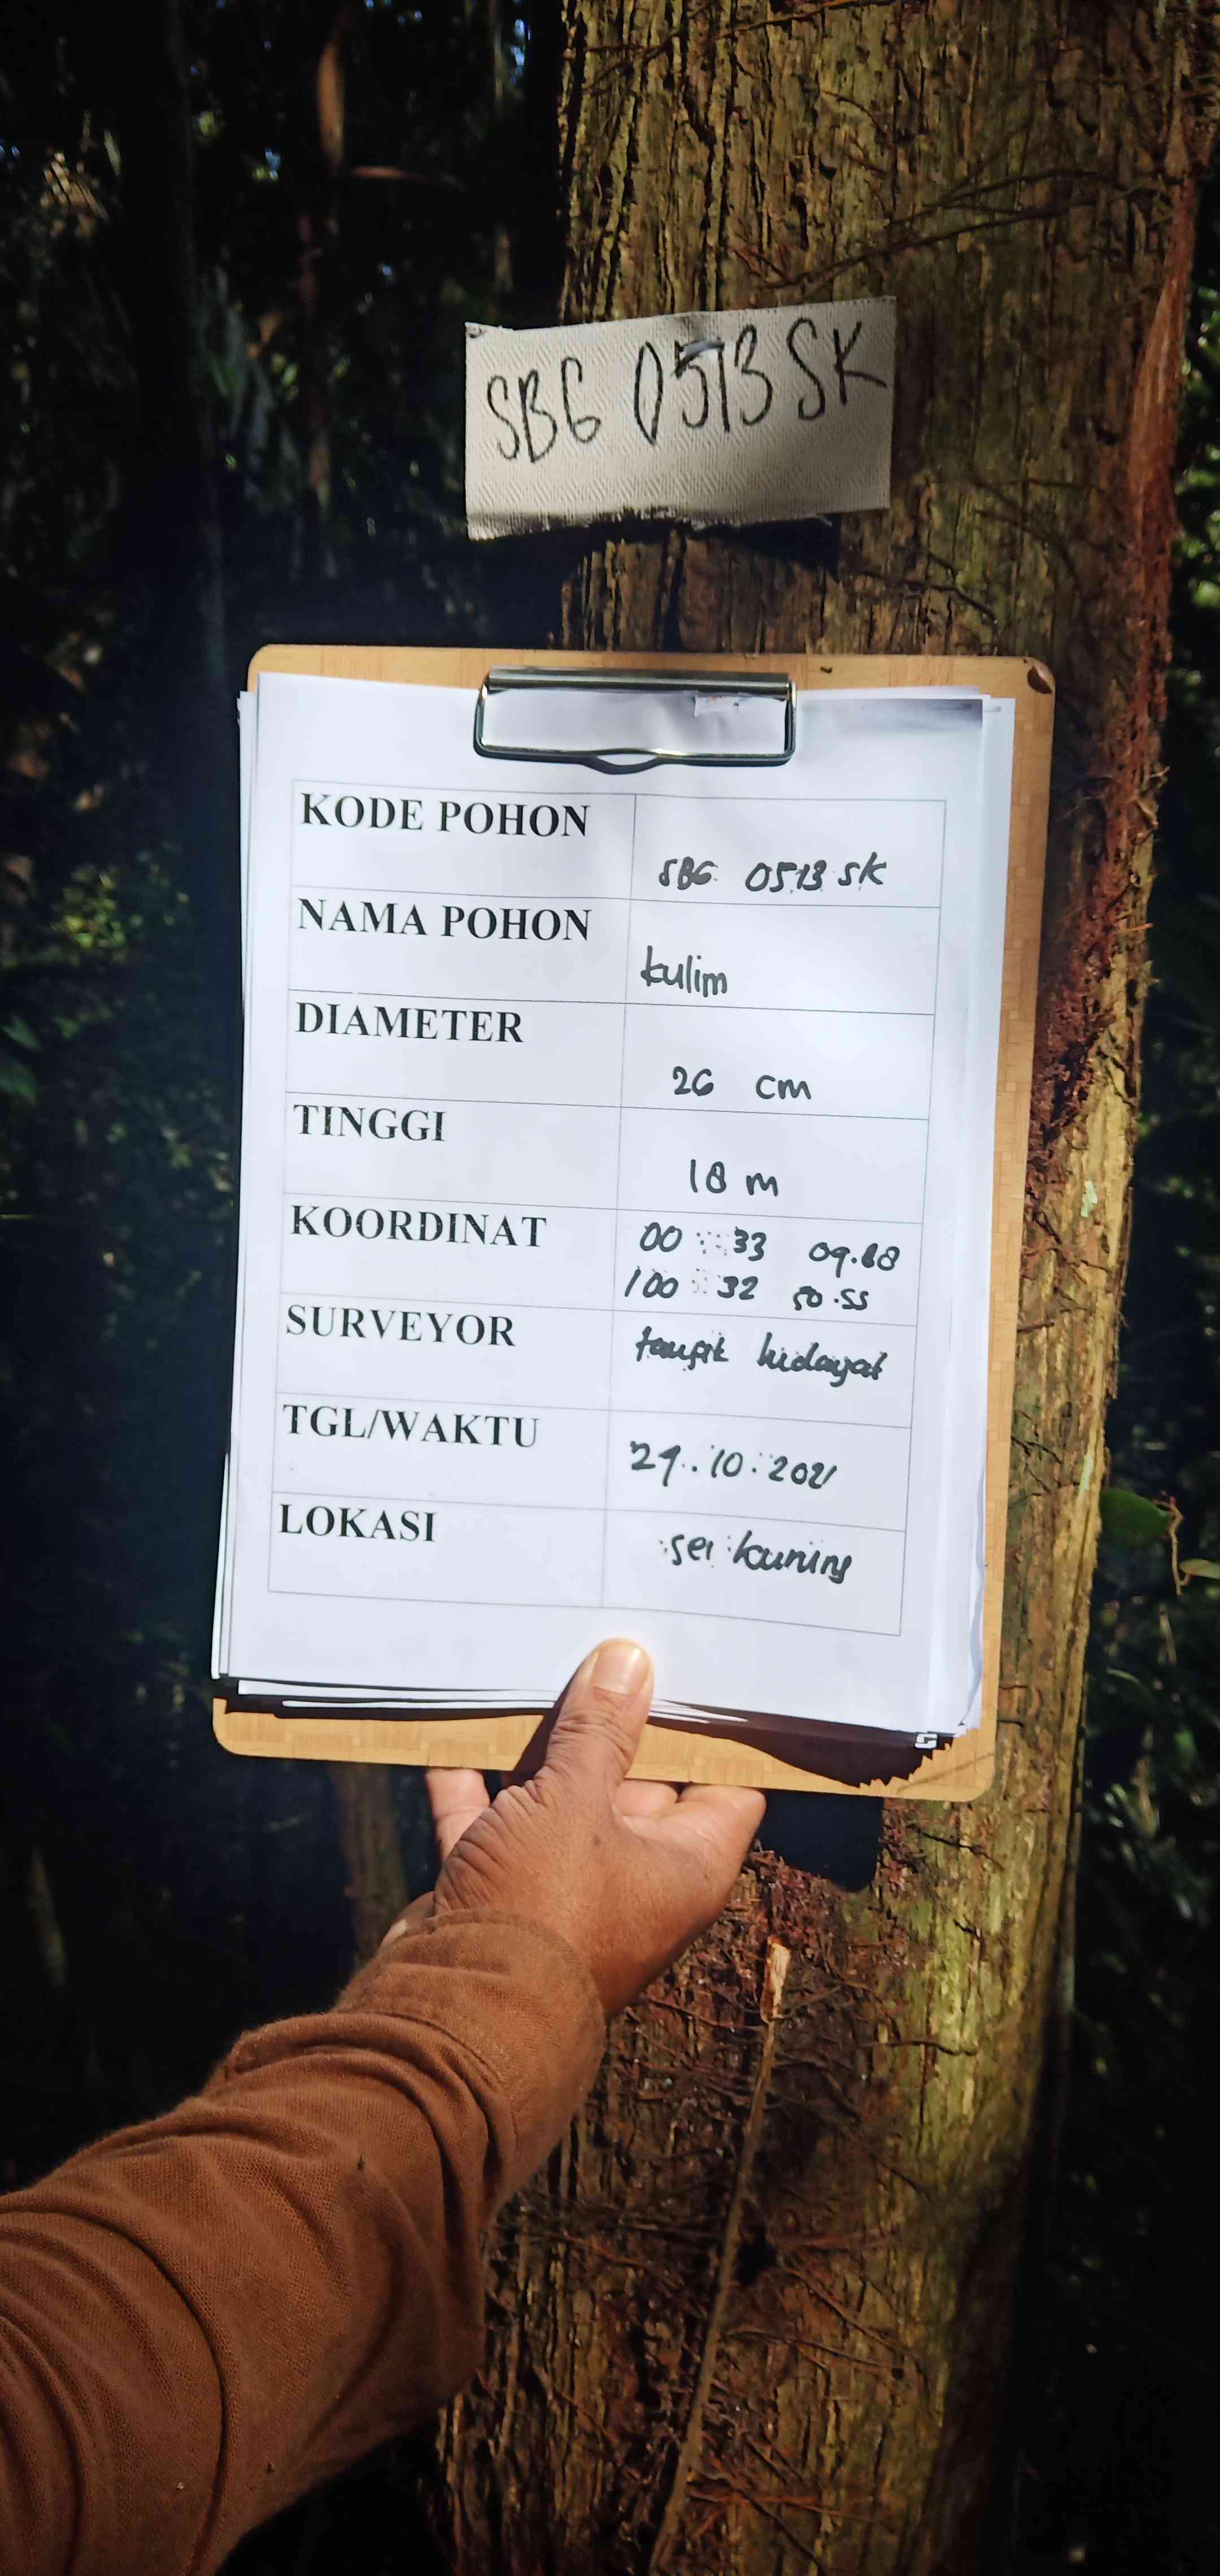 SBG 0513 SK
KODE POHON
SBG 0513 SK
NAMA POHON
kulim
DIAMETER
26 cm
TINGGI
18 m
KOORDINAT
00 33 09.88
100 32 50.55
SURVEYOR
taufik hidayat
TGL/WAKTU
29.10.2021
LOKASI
sei kuning